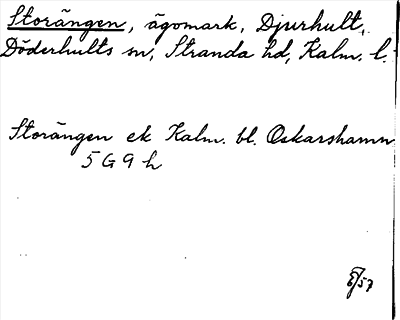 Storängen, ägomark, Djurhult,
Döderhults sn, Stranda hd, Kalm. l.
Storängen ek Kalm. bl. Oskarshamn
5 G 9 h